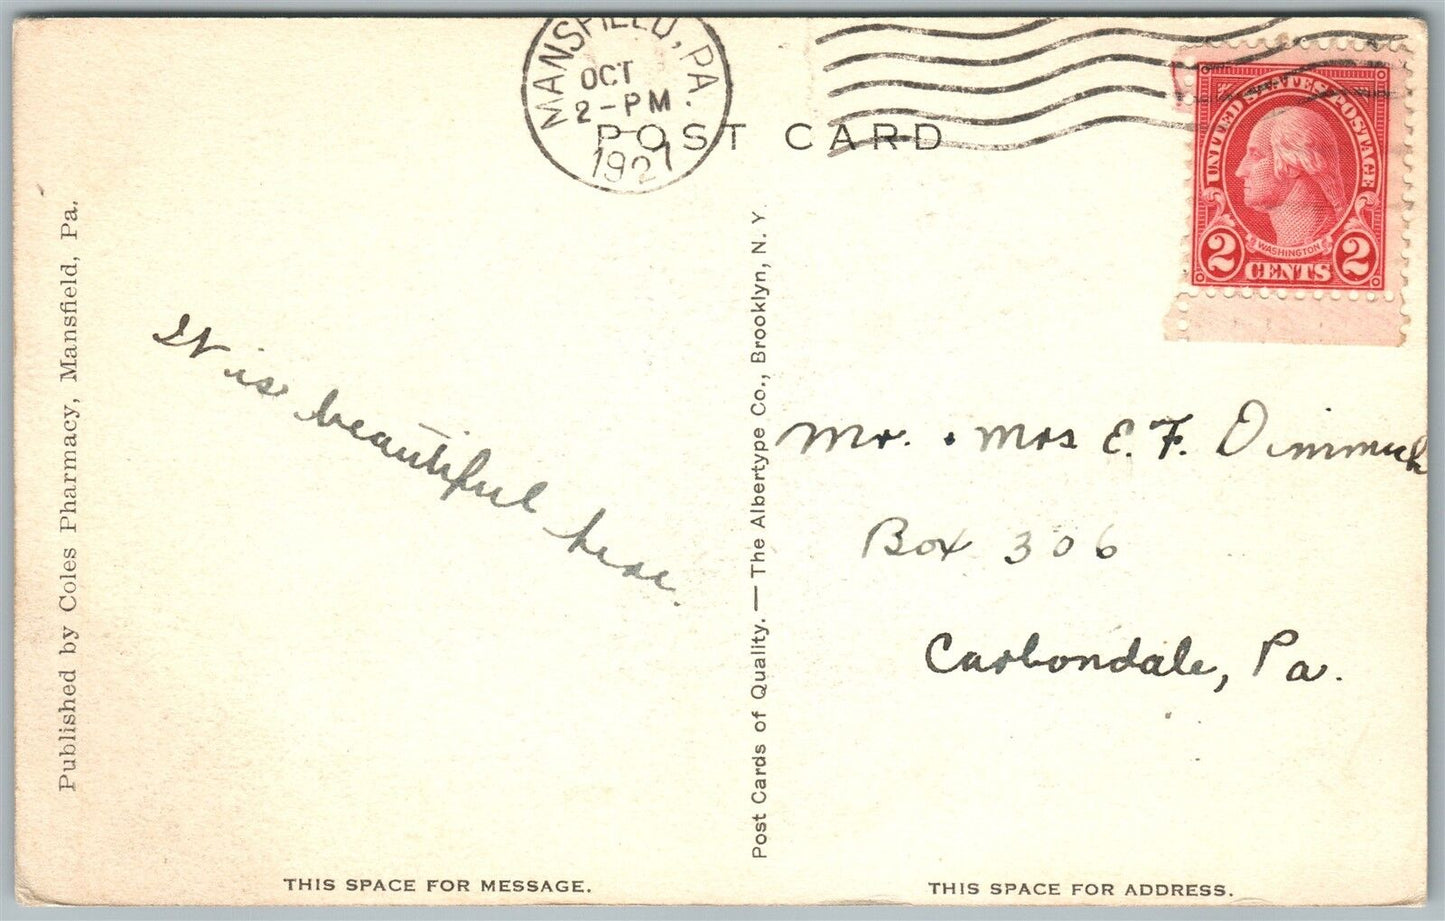 MANSFIELD, PA.
OCT
2-PM
1927
POST CARD
UNITED STATES POSTAGE
WASHINGTON
2 CENTS 2
Published by Coles Pharmacy, Mansfield, Pa.
It is beautiful here.
Post Cards of Quality. — The Albertype Co., Brooklyn, N. Y.
Mr. & Mrs E. F. Dimmick
Box 306
Carbondale, Pa.
THIS SPACE FOR MESSAGE.
THIS SPACE FOR ADDRESS.